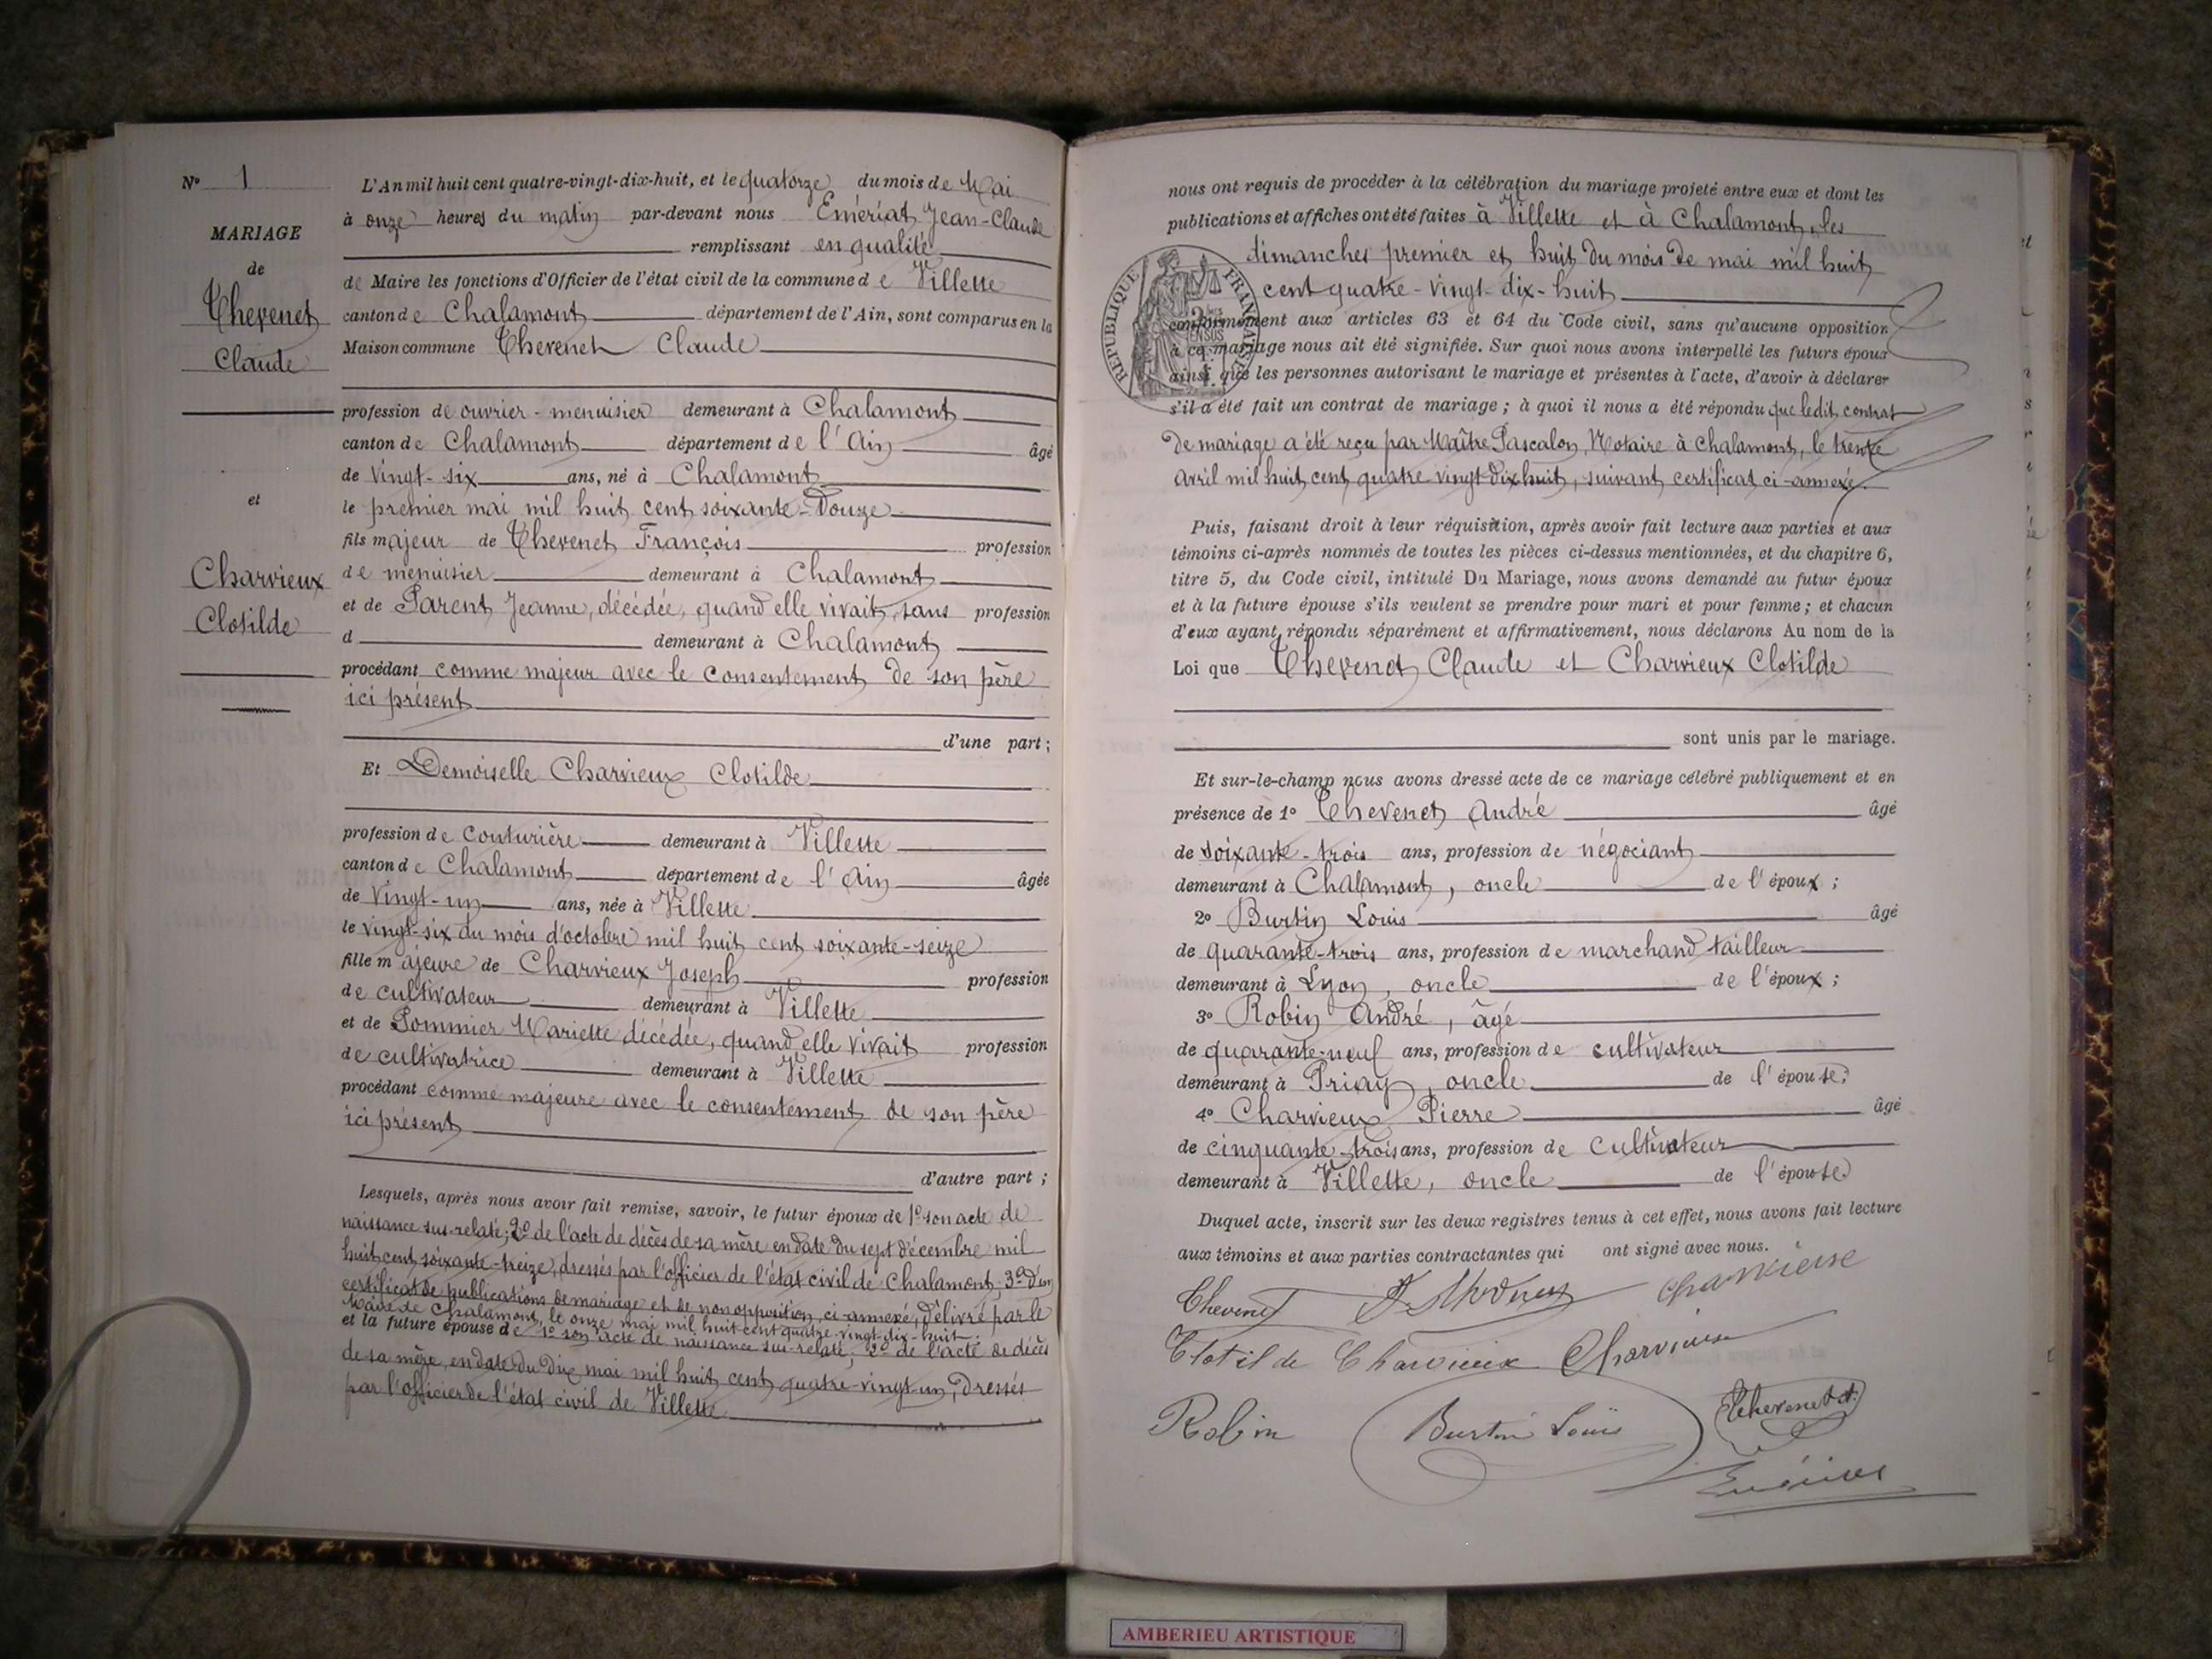 N° 1
MARIAGE
de
Thevenet
Claude
et
Charvieux
Clotilde
L'An mil huit cent quatre-vingt-dix-huit, et le quatorze du mois de Mai
à onze heures du matin par-devant nous Emériat Jean-Claude
remplissant en qualité
de Maire les fonctions d'Officier de l'état civil de la commune de Villette
canton de Chalamont département de l'Ain, sont comparus en la
Maison commune Thevenet Claude
profession de ouvrier-menuisier demeurant à Chalamont
canton de Chalamont département de l'Ain âgé
de vingt-six ans, né à Chalamont
le premier mai mil huit cent soixante-Douze
fils majeur de Thevenet François profession
de menuisier demeurant à Chalamont
et de Parent Jeanne, décédée, quand elle vivait, sans profession
d demeurant à Chalamont
procédant comme majeur avec le consentement de son père
ici présent
d'une part ;
Et Demoiselle Charvieux Clotilde
profession de couturière demeurant à Villette
canton de Chalamont département de l'Ain âgée
de vingt-un ans, née à Villette
le vingt-six du mois d'octobre mil huit cent soixante-seize
fille majeure de Charvieux Joseph profession
de cultivateur demeurant à Villette
et de Pommier Mariette décédée, quand elle vivait profession
de cultivatrice demeurant à Villette
procédant comme majeure avec le consentement de son père
ici présent
d'autre part ;
Lesquels, après nous avoir fait remise, savoir, le futur époux de 1° son acte de
naissance sus-relaté; 2° de l'acte de décès de sa mère en date du sept décembre mil
huit cent soixante-treize, dressés par l'officier de l'état civil de Chalamont; 3° d'un
certificat de publications de mariage et de non opposition, ci-annexé, délivré par le
Maire de Chalamont, le onze mai mil huit cent quatre-vingt-dix-huit;
et la future épouse de 1° son acte de naissance sus-relaté; 2° de l'acte de décès
de sa mère, en date du Dix mai mil huit cent quatre-vingt-un, Dressés
par l'officier de l'état civil de Villette
nous ont requis de procéder à la célébration du mariage projeté entre eux et dont les
publications et affiches ont été faites à Villette et à Chalamont, les
dimanches premier et huit du mois de mai mil huit
cent quatre-vingt-dix-huit
RÉPUBLIQUE FRANÇAISE
conformément aux articles 63 et 64 du Code civil, sans qu'aucune opposition
à ce mariage nous ait été signifiée. Sur quoi nous avons interpellé les futurs époux
ainsi que les personnes autorisant le mariage et présentes à l'acte, d'avoir à déclarer
s'il a été fait un contrat de mariage ; à quoi il nous a été répondu que ledit contrat
de mariage a été reçu par Maître Pascalon, Notaire à Chalamont, le trente
avril mil huit cent quatre-vingt-dix huit, suivant certificat ci-annexé.
Puis, faisant droit à leur réquisition, après avoir fait lecture aux parties et aux
témoins ci-après nommés de toutes les pièces ci-dessus mentionnées, et du chapitre 6,
titre 5, du Code civil, intitulé Du Mariage, nous avons demandé au futur époux
et à la future épouse s'ils veulent se prendre pour mari et pour femme ; et chacun
d'eux ayant répondu séparément et affirmativement, nous déclarons Au nom de la
Loi que Thevenet Claude et Charvieux Clotilde
sont unis par le mariage.
Et sur-le-champ nous avons dressé acte de ce mariage célébré publiquement et en
présence de 1° Thevenet André âgé
de soixante-trois ans, profession de négociant
demeurant à Chalamont, oncle de l'époux ;
2° Burtin Louis âgé
de quarante-trois ans, profession de marchand tailleur
demeurant à Lyon, oncle de l'époux ;
3° Robin André, âgé
de quarante-neuf ans, profession de cultivateur
demeurant à Priay, oncle de l'épouse;
4° Charvieux Pierre âgé
de cinquante-trois ans, profession de cultivateur
demeurant à Villette, oncle de l'épouse
Duquel acte, inscrit sur les deux registres tenus à cet effet, nous avons fait lecture
aux témoins et aux parties contractantes qui ont signé avec nous.
Thevenet
Clotilde Charvieux Charvieux
Robin Burtin Louis Thevenet A.
Emériat
AMBERIEU ARTISTIQUE